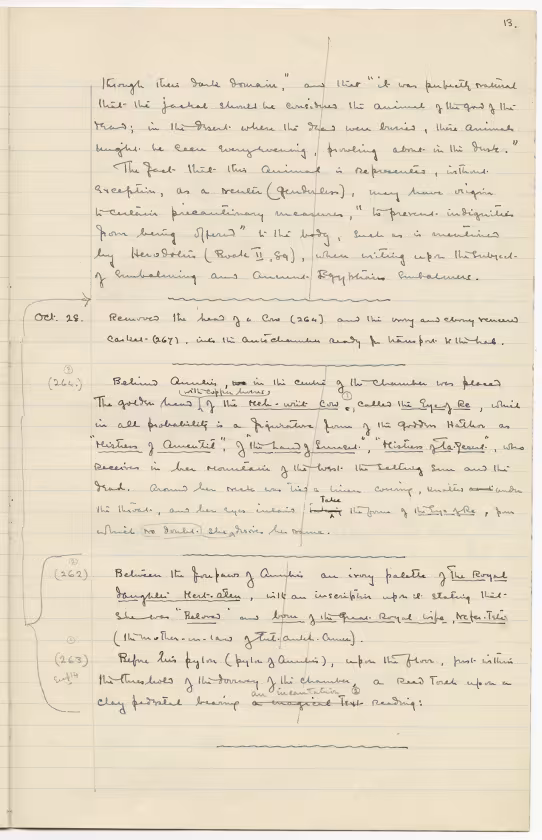 13.
through their dark domain," and that "it was perfectly natural
that the jackal should be considered the animal of the god of the
dead; in the desert where the dead were buried, these animals
might be seen every evening, prowling about in the dusk."
The fact that this animal is represented, without
exception, as a neuter (genderless), may have origin
to certain precautionary measures, "to prevent indignities
from being offered" to the body, such as is mentioned
by Herodotus (Book II, 89), when writing upon the subject
of Embalming and Ancient Egyptian Embalmers.
Oct. 28. Removed the head of a Cow (264) and the ivory and ebony veneered
casket (267), into the Antechamber ready for transport to the lab.
(264.) Behind Anubis, in the centre of the chamber was placed
(with copper horns)
The golden head of the Meh-writ Cow, called the Eye of Re, which
in all probability is a figurative form of the Goddess Hathor as
"Mistress of Amentit", of "the Land of Sunset", "Mistress of the West", who
receives in her Mountain of the West the Setting Sun and the
dead. Around her neck was tied a linen covering, knotted under
the throat, and her eyes inlaid Take the form of the Eye of Re, from
which no doubt she derives her name.
(262) Between the forepaws of Anubis an ivory palette of the Royal
daughter Merit-aten, with an inscription upon it stating that
she was "Beloved" and born of the Great Royal Wife, Nefer-Titi
(the mother-in-law of Tut-ankh-Amen).
(263) Before his pylon (pylon of Anubis), upon the floor, just within
the threshold of the doorway of the chamber, a Reed Torch upon a
an incantation
clay pedestal bearing a magical Text reading: